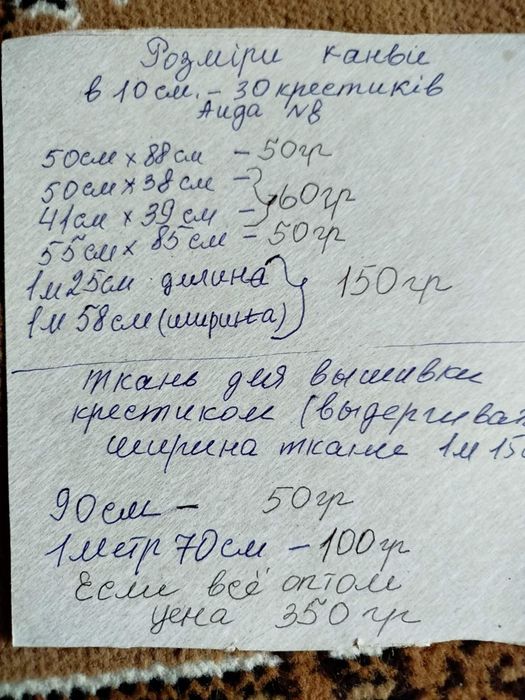 Розміри канви
в 10 см. - 30 крестиків
Аида №8
50см х 88 см - 50 гр
50см х 38 см -
41см х 39 см - } 60 гр
55см х 85 см - 50 гр
1м 25см длина
1м 58см (ширина) } 150 гр
ткань для вышивки
крестиком (выдергива
ширина ткани 1м 15
90 см - 50 гр
1 метр 70 см - 100 гр
Если всё оптом
цена 350 гр